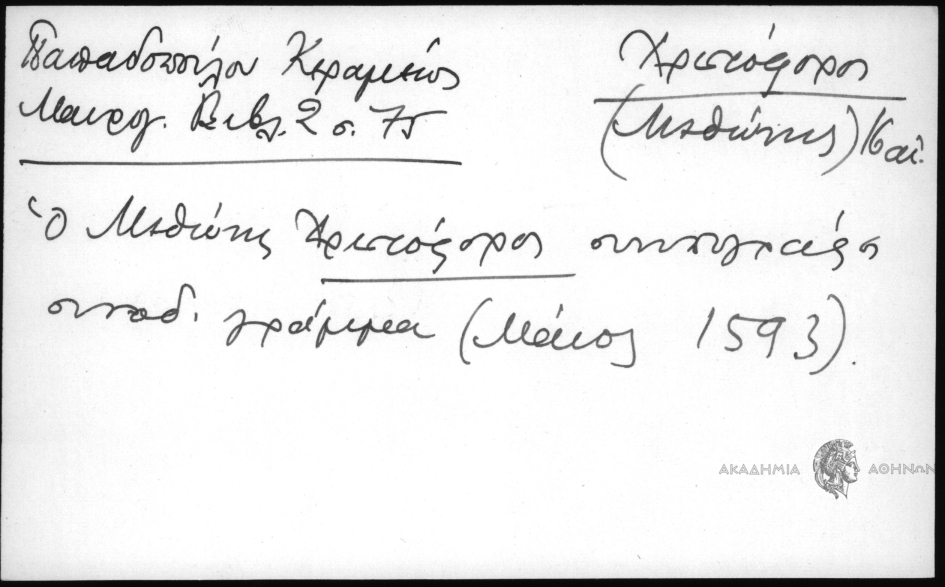 Παπαδοπούλου Κεραμέως
Μαυρογ. Βιβλ. 2 σ. 75
Χριστόφορος
(Μηθύμνης) 16 αἰ.
Ὁ Μηθύμνης Χριστόφορος συνυπογράφει
συνοδ. γράμμα (Μάιος 1593).
ΑΚΑΔΗΜΙΑ ΑΘΗΝΩΝ